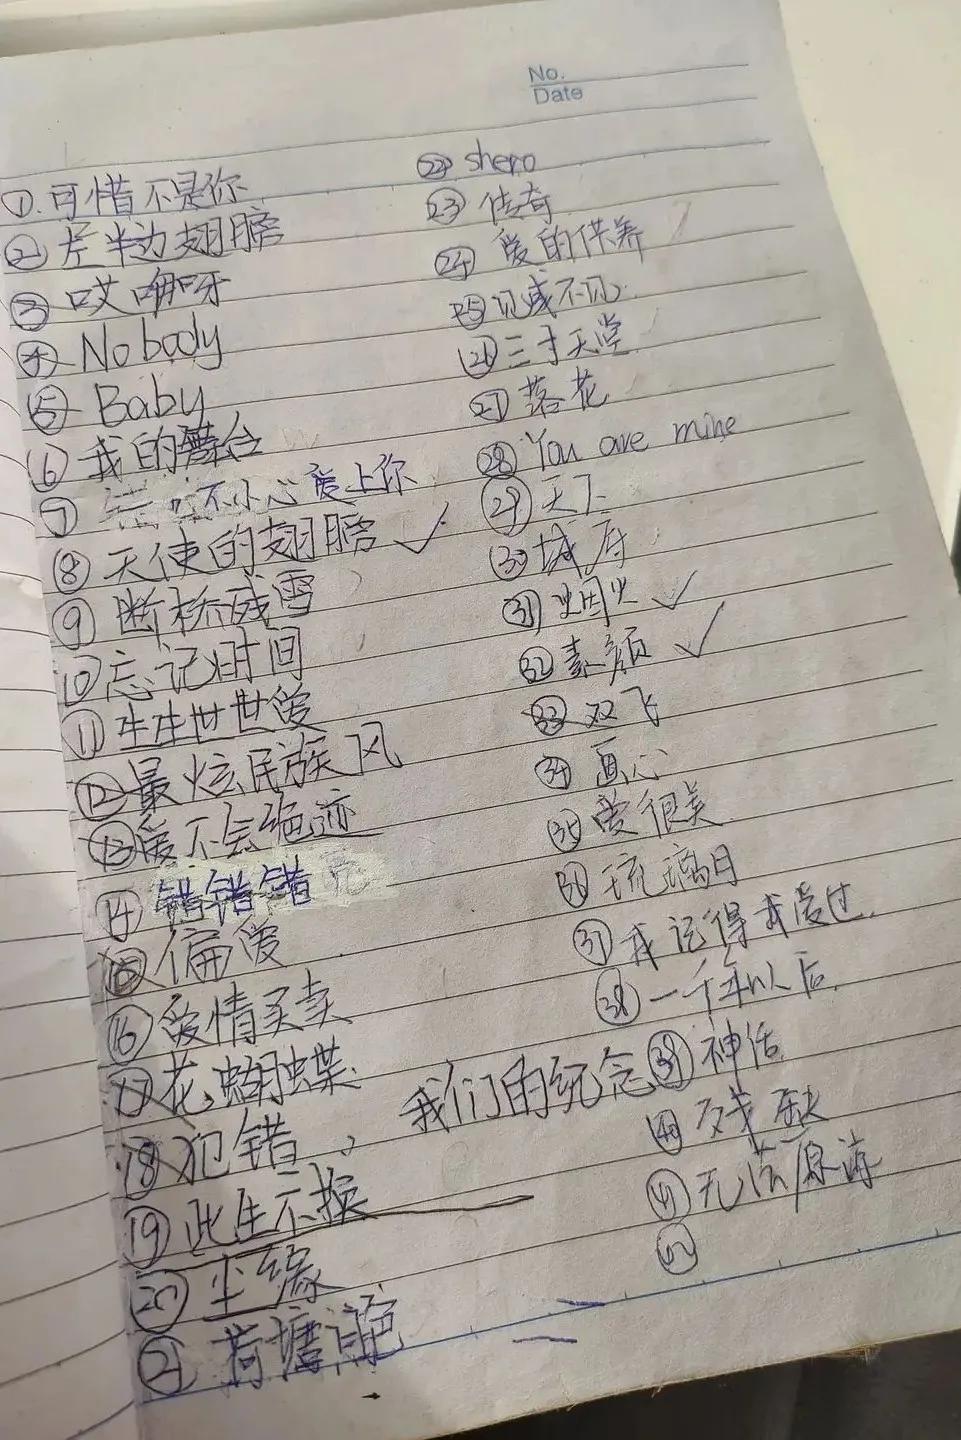 No.
Date
① 可惜不是你
② 左半边翅膀
③ 哎哟呀
④ Nobody
⑤ Baby
⑥ 我的舞台
⑦ 不小心爱上你
⑧ 天使的翅膀 ✓
⑨ 断桥残雪
⑩ 忘记时间
⑪ 生生世世爱
⑫ 最炫民族风
⑬ 爱不会绝迹
⑭ 错错错
⑮ 偏爱
⑯ 爱情买卖
⑰ 花蝴蝶
⑱ 犯错
我们的纪念
⑲ 此生不换
⑳ 尘缘
㉑ 荷塘月色
㉒ shero
㉓ 传奇
㉔ 爱的供养
㉕ 见或不见
㉖ 三寸天堂
㉗ 落花
㉘ You are mine
㉙ 天下
㉚ 城府
㉛ 烟火 ✓
㉜ 素颜 ✓
㉝ 双飞
㉞ 画心
㉟ 爱很美
㊱ 琉璃月
㊲ 我记得我爱过
㊳ 一千年以后
㊴ 神话
㊵ 残缺
㊶ 无法原谅
㊷